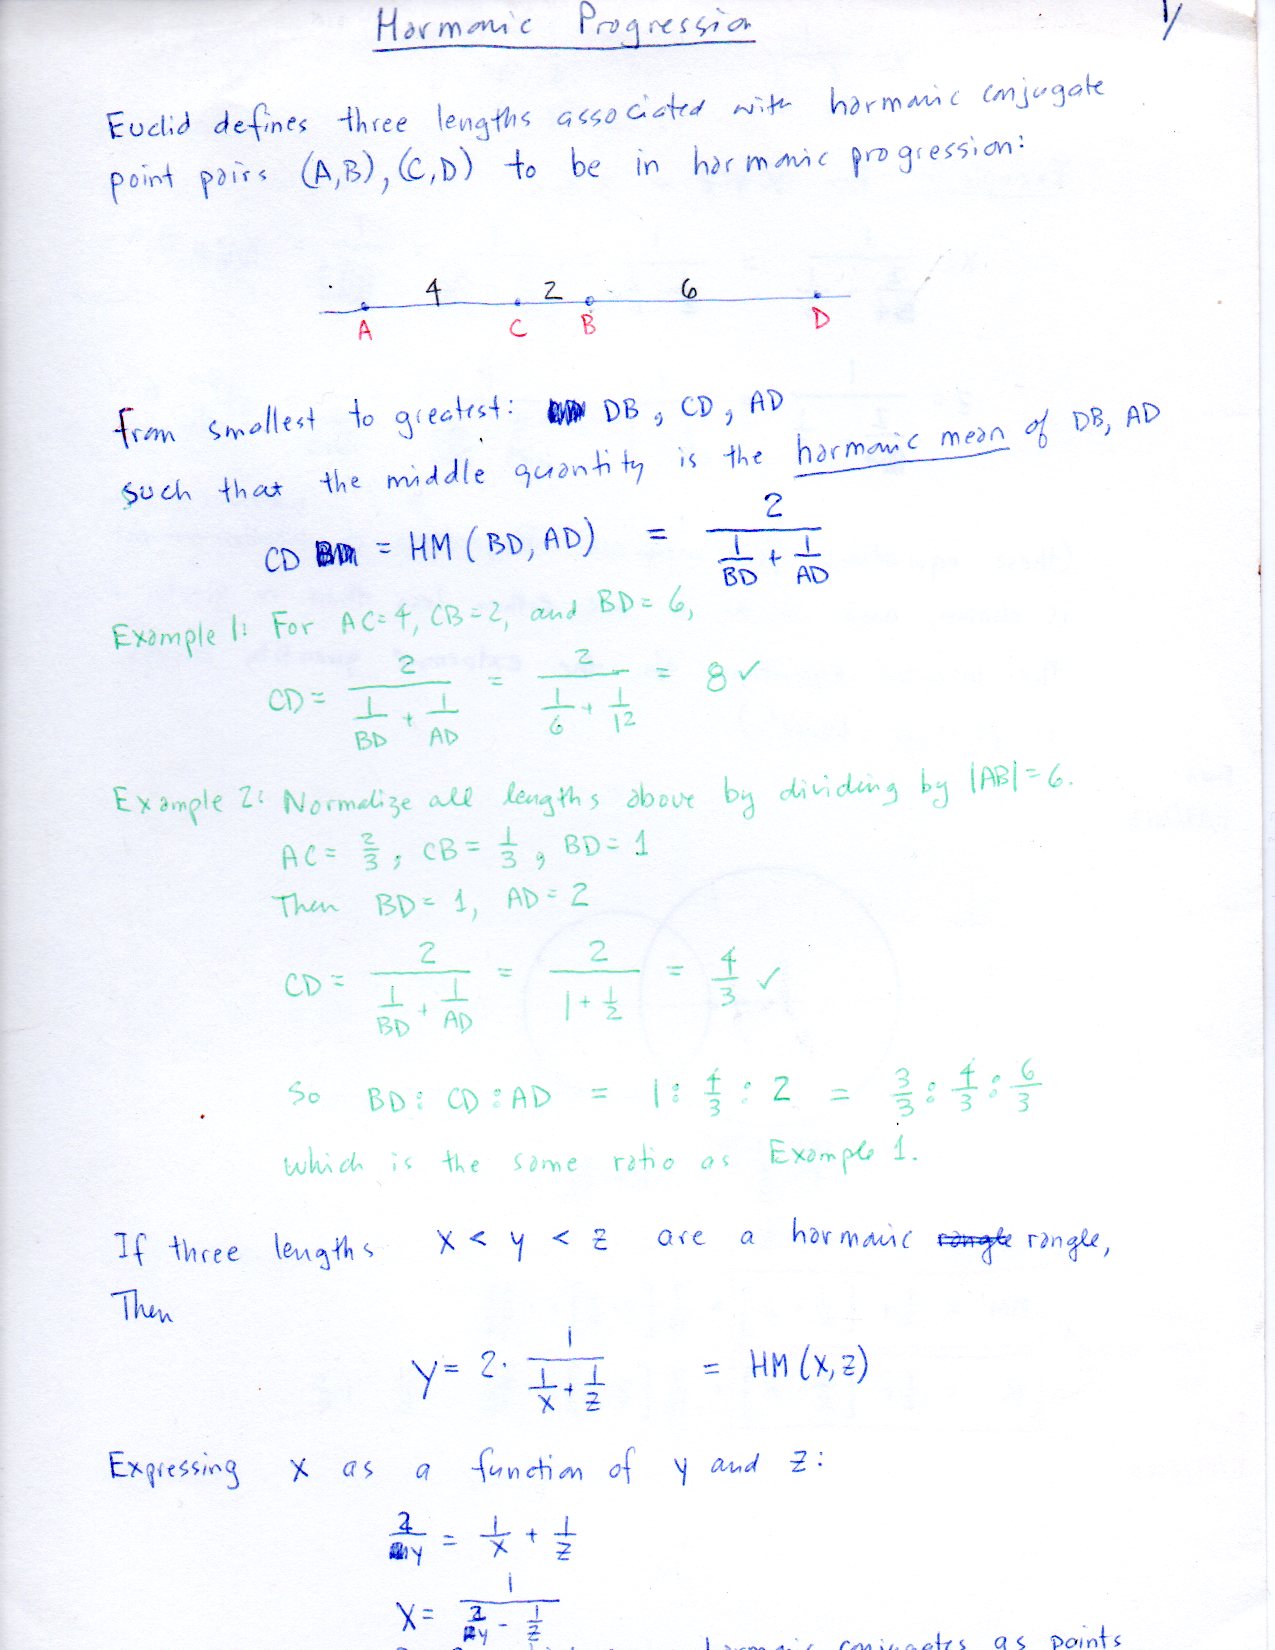 Harmonic Progression
1/
Euclid defines three lengths associated with harmonic conjugate
point pairs (A,B), (C,D) to be in harmonic progression:
4 2 6
A C B D
from smallest to greatest: DB, CD, AD
such that the middle quantity is the harmonic mean of DB, AD
CD = HM (BD, AD) = 2 / (1/BD + 1/AD)
Example 1: For AC=4, CB=2, and BD=6,
CD = 2 / (1/BD + 1/AD) = 2 / (1/6 + 1/12) = 8 ✓
Example 2: Normalize all lengths above by dividing by |AB|=6.
AC = 2/3, CB = 1/3, BD = 1
Then BD = 1, AD = 2
CD = 2 / (1/BD + 1/AD) = 2 / (1 + 1/2) = 4/3 ✓
So BD : CD : AD = 1 : 4/3 : 2 = 3/3 : 4/3 : 6/3
which is the same ratio as Example 1.
If three lengths x < y < z are a harmonic rangle,
Then
y = 2 · 1 / (1/x + 1/z) = HM (x, z)
Expressing x as a function of y and z:
2/y = 1/x + 1/z
x = 1 / (2/y - 1/z)
harmonic conjugates as points